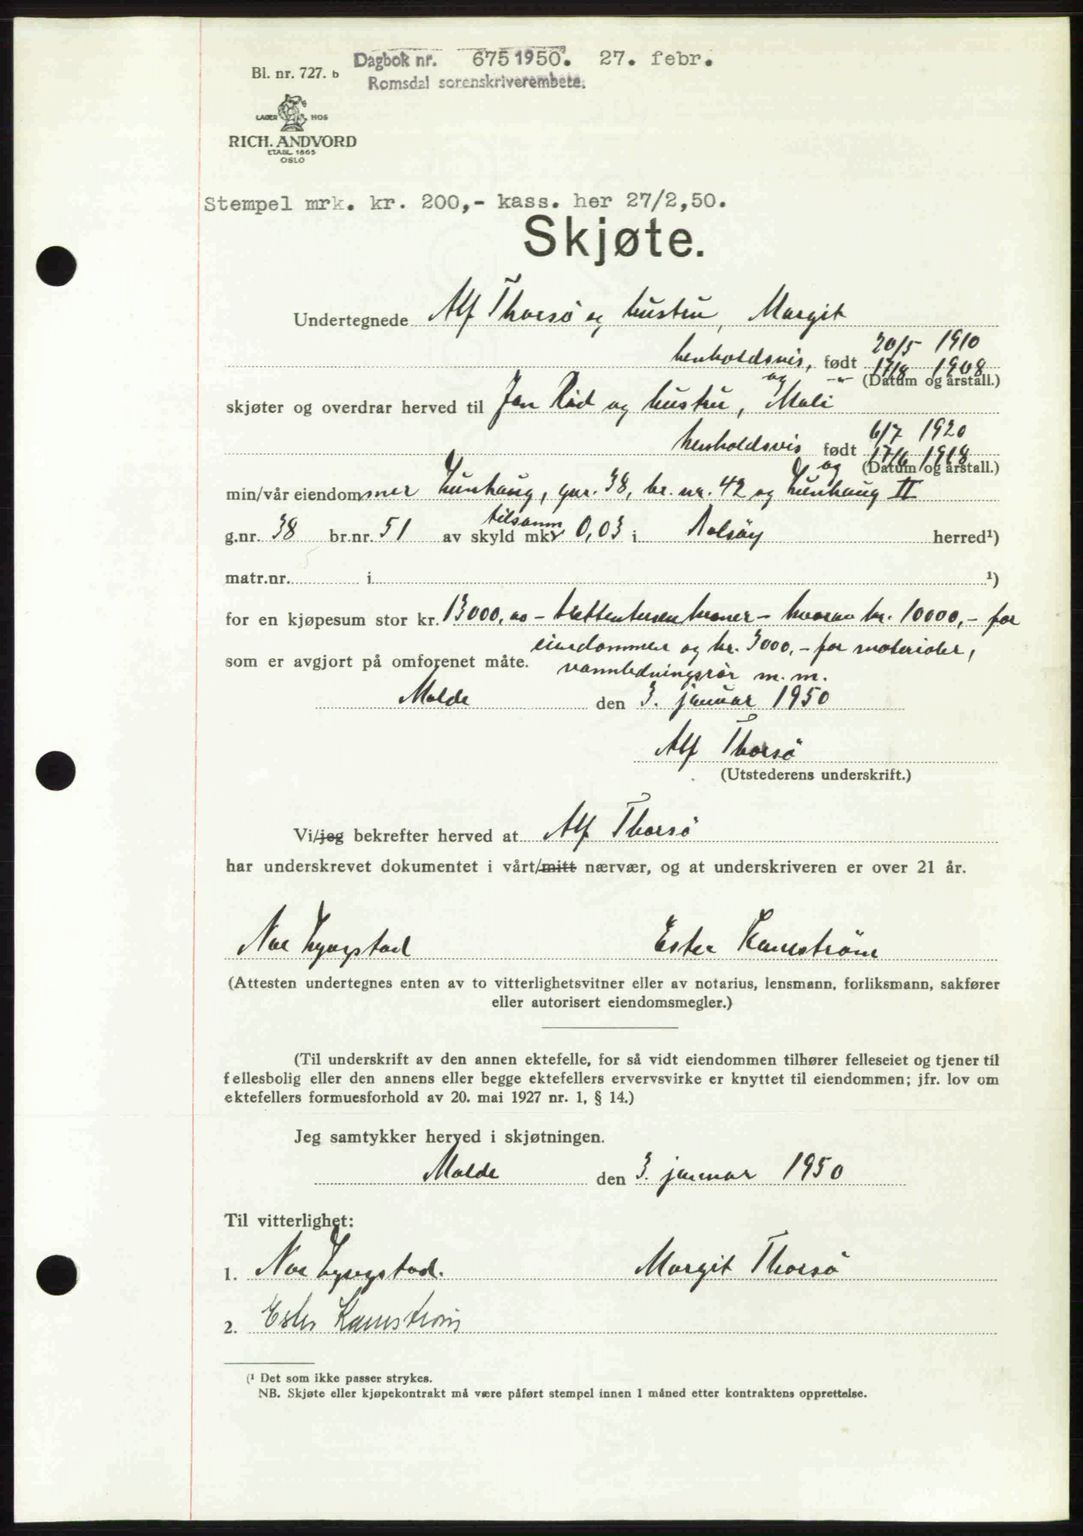 Dagbok nr. 675 1950. 27. febr.
Romsdal sorenskriverembete.
Bl. nr. 727. b
LAGER HOS
RICH. ANDVORD
ETABL. 1865
OSLO
Stempel mrk. kr. 200,- kass. her 27/2,50.
Skjøte.
Undertegnede Alf Thorsö og hustru, Margit
henholdsvis, født 20/5 1910
og 17/8 1908
(Datum og årstall.)
skjøter og overdrar herved til Jan Röd og hustru, Mali
henholdsvis født 6/7 1920
og 17/6 1918
(Datum og årstall.)
min/vår eiendommer Lunhaug, gnr. 38, br. nr. 42 og Lunhaug II
g.nr. 38 br.nr. 51 av skyld mkr tilsamm 0,03 i Bolsöy herred¹)
matr.nr. i ¹)
for en kjøpesum stor kr. 13000,00 - trettentusen kroner - hvorav kr. 10000,- for
eiendommer og kr. 3000,- for materialer,
som er avgjort på omforenet måte. vannledningsrör m. m.
Molde den 3. januar 1950
Alf Thorsö
(Utstederens underskrift.)
Vi/jeg bekrefter herved at Alf Thorsö
har underskrevet dokumentet i vårt/mitt nærvær, og at underskriveren er over 21 år.
Ester
(Attesten undertegnes enten av to vitterlighetsvitner eller av notarius, lensmann, forliksmann, sakfører
eller autorisert eiendomsmegler.)
(Til underskrift av den annen ektefelle, for så vidt eiendommen tilhører felleseiet og tjener til
fellesbolig eller den annens eller begge ektefellers ervervsvirke er knyttet til eiendommen; jfr. lov om
ektefellers formuesforhold av 20. mai 1927 nr. 1, § 14.)
Jeg samtykker herved i skjøtningen.
Molde den 3. januar 1950
Til vitterlighet:
1. Margit Thorsö
2. Ester
(¹ Det som ikke passer strykes.
NB. Skjøte eller kjøpekontrakt må være påført stempel innen 1 måned etter kontraktens opprettelse.